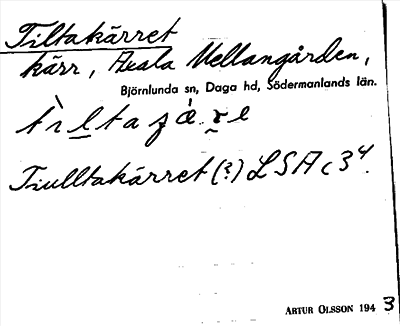 Tiltakärret
kärr, Axala Mellangården,
Björnlunda sn, Daga hd, Södermanlands län.
Tiulltakärret (?) LSA c 34.
ARTUR OLSSON 1943